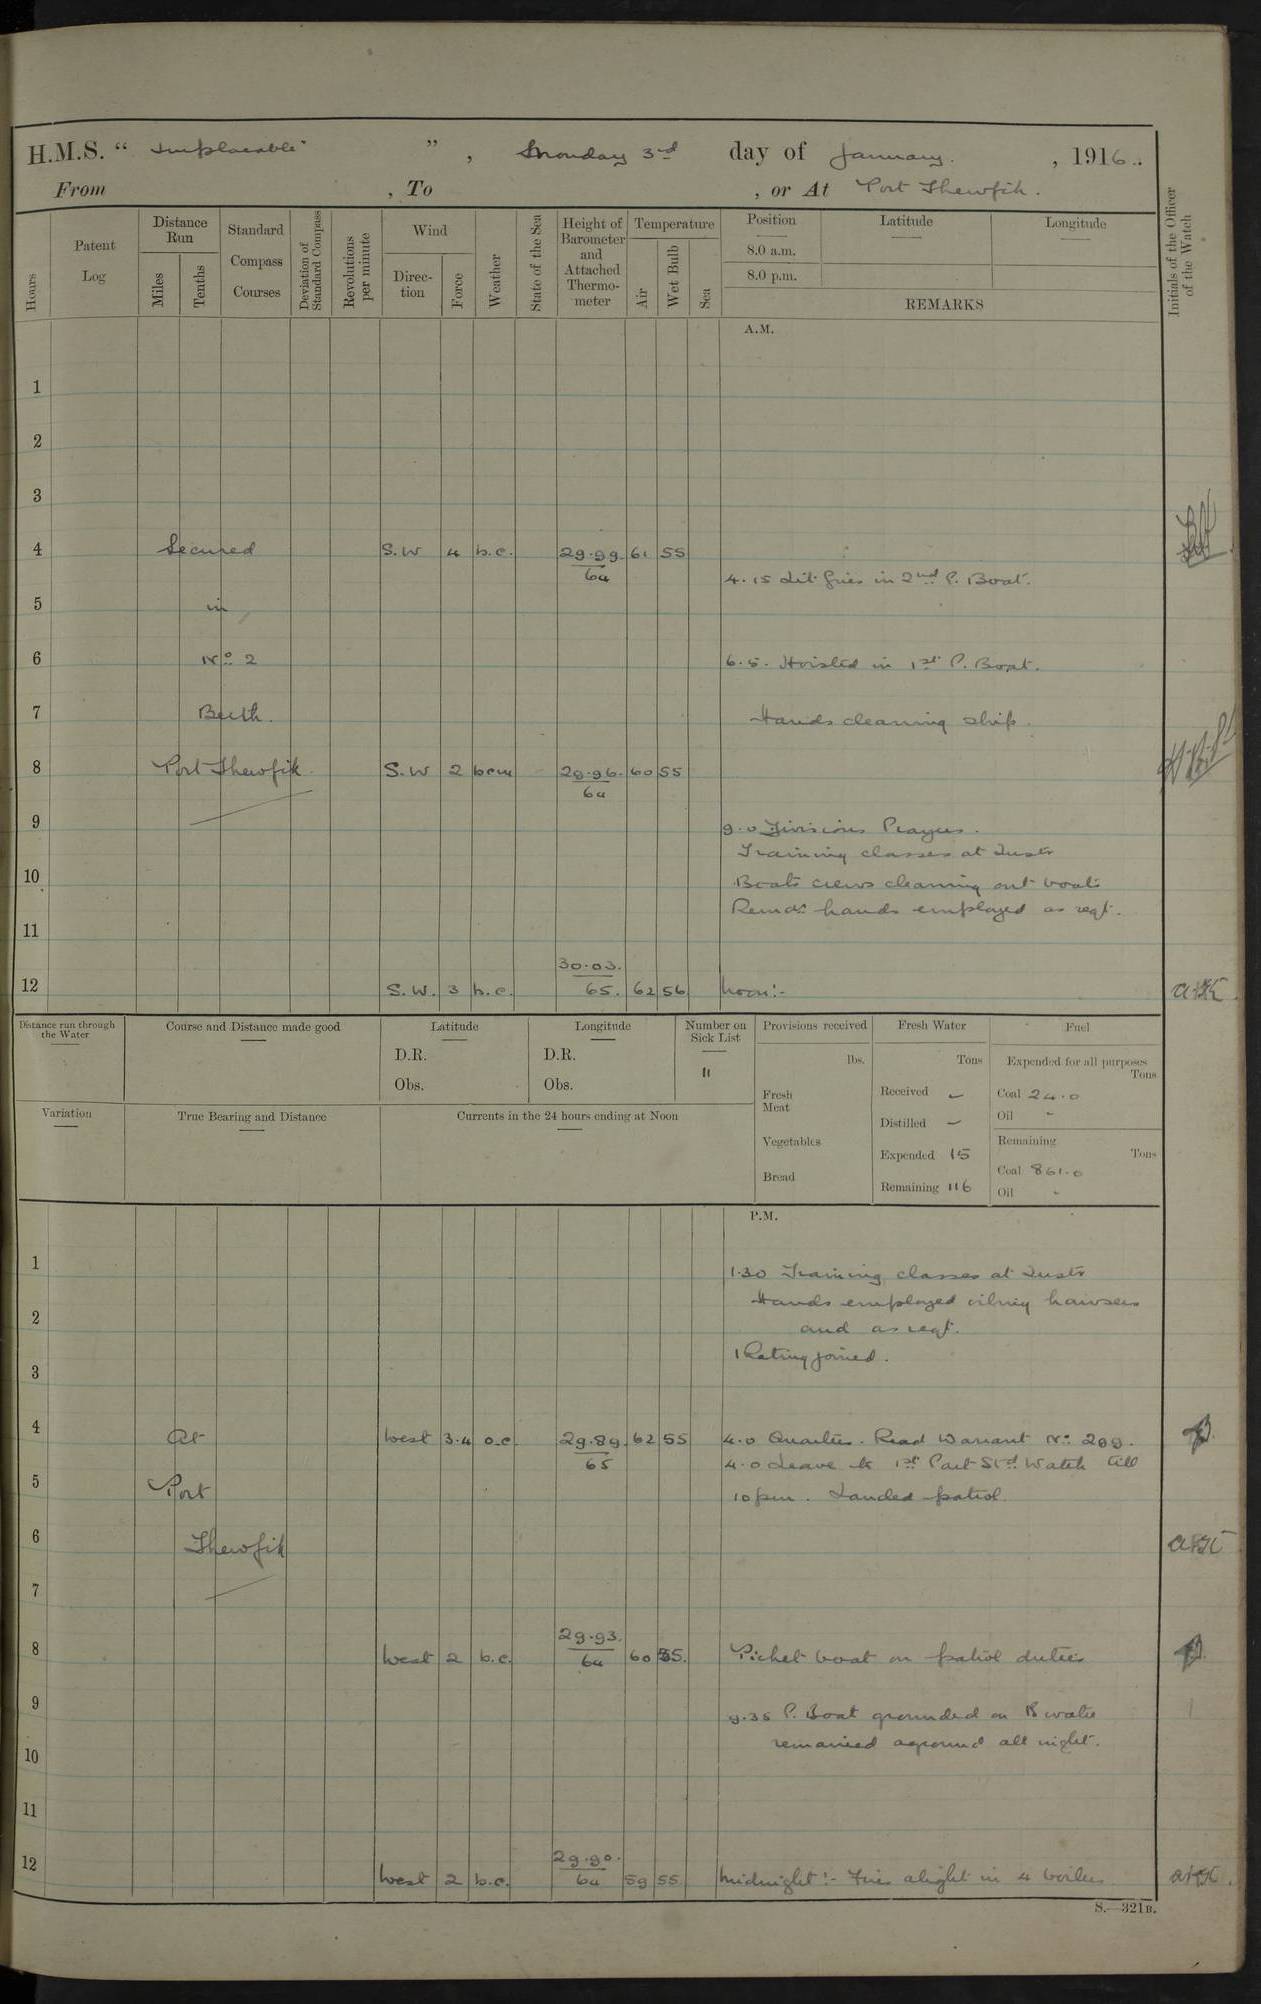 H.M.S. “ Implacable ” , Monday 3rd day of January. , 1916.
From , To , or At Port Thewfik.
Hours
Patent Log
Distance Run
Miles
Tenths
Standard Compass Courses
Deviation of Standard Compass
Revolutions per minute
Wind
Direction
Force
Weather
State of the Sea
Height of Barometer and Attached Thermometer
Temperature
Air
Wet Bulb
Sea
Position
8.0 a.m.
8.0 p.m.
Latitude
Longitude
REMARKS
Initials of the Officer of the Watch
A.M.
1
2
3
4 Secured S.W 4 b.c. 29.99 64 61 55
4.15 Lit fires in 2nd P. Boat.
5 in
6 No 2 6.5. Hoisted in 1st P. Boat.
7 Berth. Hands cleaning ship.
8 Port Thewfik S.W 2 bcm 29.96. 64 60 55
9 9.0 Divisions Prayers.
Training classes at Instr
10 Boats crews cleaning out boats
Remdr hands employed as reqt.
11
12 S.W. 3 b.c. 30.03. 65. 62 56 Noon:- AHK
Distance run through the Water
Course and Distance made good
Latitude
D.R.
Obs.
Longitude
D.R.
Obs.
Number on Sick List
11
Provisions received
lbs.
Fresh Meat
Vegetables
Bread
Fresh Water
Tons
Received -
Distilled -
Expended 15
Remaining 116
Fuel
Expended for all purposes
Tons
Coal 24.0
Oil -
Remaining
Tons
Coal 861.0
Oil -
Variation
True Bearing and Distance
Currents in the 24 hours ending at Noon
P.M.
1 1.30 Training classes at Instr
2 Hands employed oiling hawsers
and as reqt.
1 Rating joined.
3
4 At West 3.4 o.c. 29.89 65 62 55 4.0 Quarters. Read Warrant No 209.
4.0 Leave to 1st Part Stbd Watch till
5 Port 10 pm. Landed patrol.
6 Thewfik AHK
7
8 West 2 b.c. 29.93. 64 60 55. Picket boat on patrol duties
9 9.35 P. Boat grounded on B water
10 remained aground all night.
11
12 West 2 b.c. 29.90. 64 59 55 Midnight:- Fires alight in 4 boilers AHK.
S.—321B.